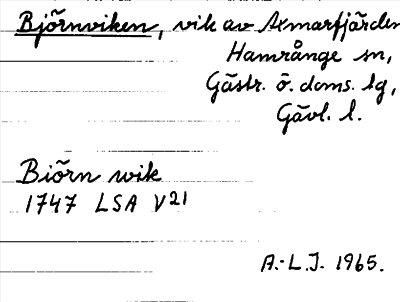 Björnviken, vik av Axmarfjärden
Hamrånge sn,
Gästr. ö. doms. lg,
Gävl. l.
Biörn wik
1747 LSA V21
A.-L.J. 1965.